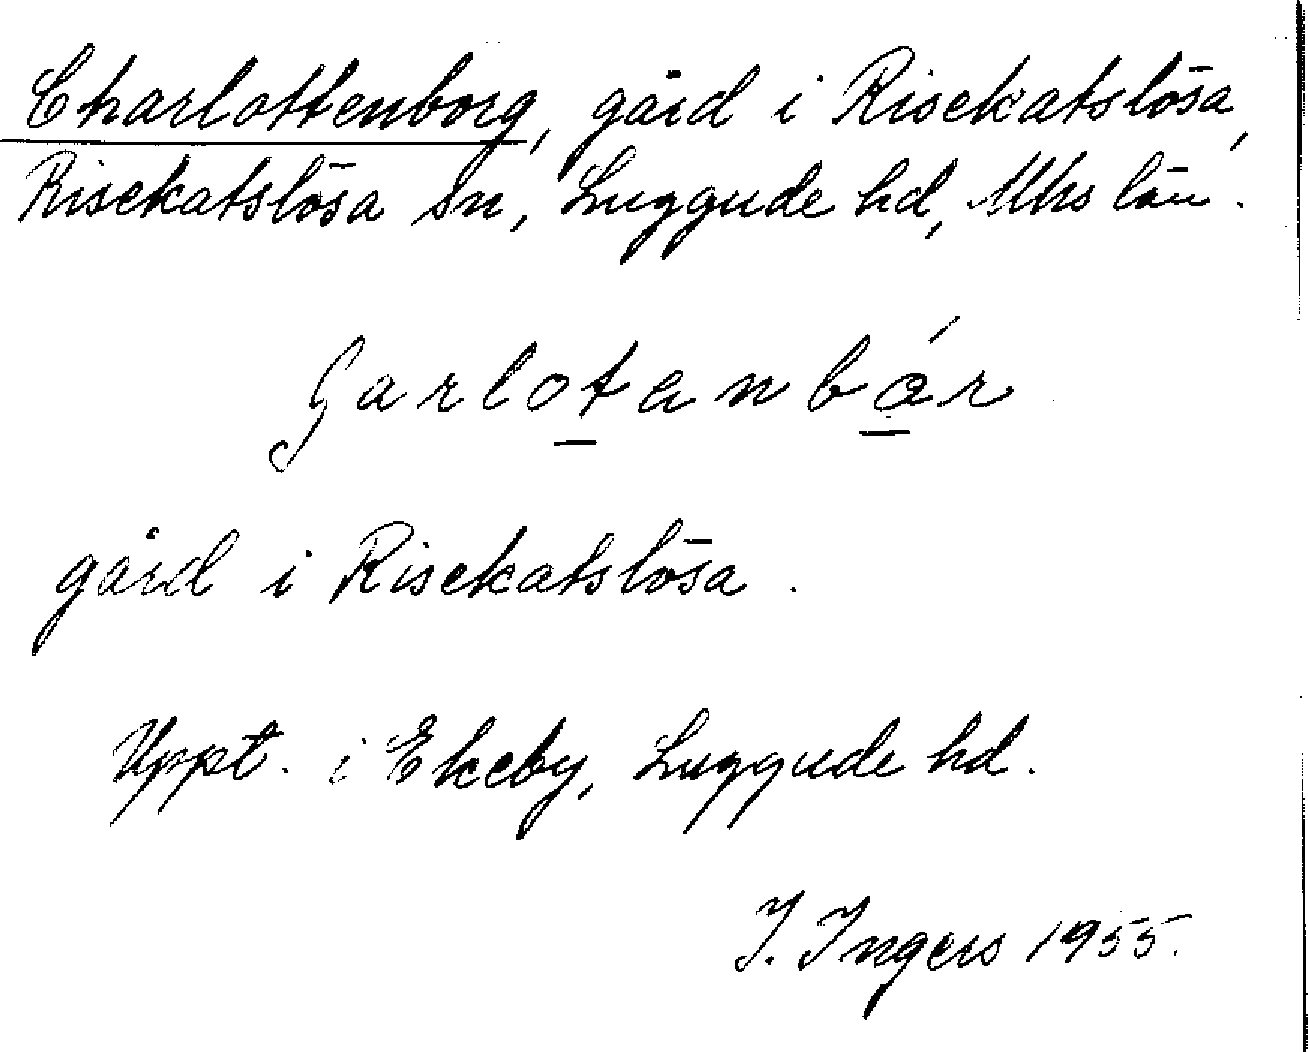 Charlottenborg, gård i Risekatslösa,
Risekatslösa sn, Luggude hd, Mhs län.
Sarlotanbár
gård i Risekatslösa.
Uppt. i Ekeby, Luggude hd.
I. Ingers 1955.